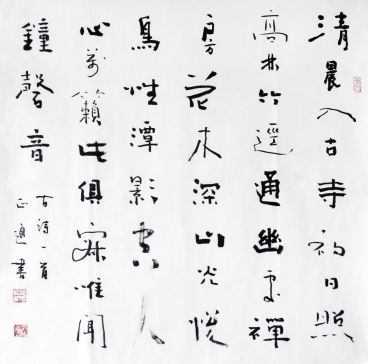 清晨入古寺初日照
高林竹逕通幽處禪
房花木深山光悅
鳥性潭影空人
心萬籟此俱寂唯聞
鐘聲音
古詩一首
正書